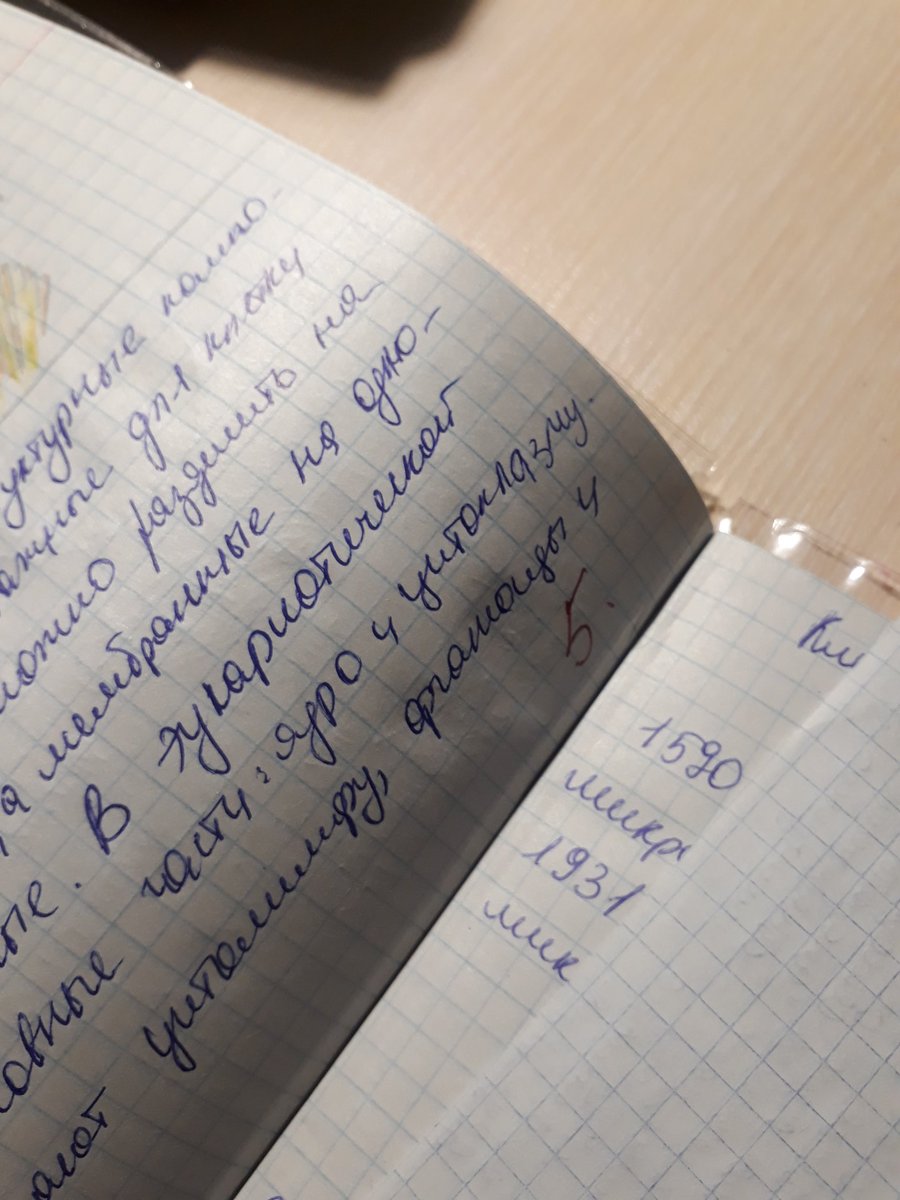 уктурные компо-
ажные для клетку
можно разделить на
а мембранные на одно-
ые. В эукариотической
овные части: ядро и цитоплазму.
ают цитолимфу, органоиды и
5.
Кл
1590
микр
1931
мик